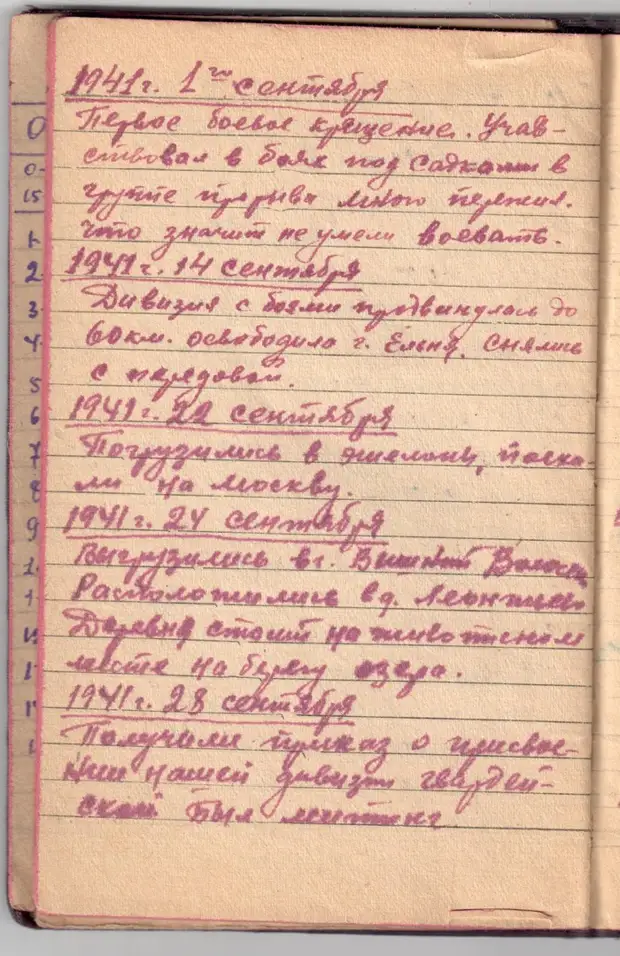 1941 г. 1го сентября
Первое боевое крещение. Учав-
ствовал в боях под Садками в
группе прорыва много пережил.
что значит не умели воевать.
1941 г. 14 сентября
Дивизия с боями продвинулась до
60 км. освободила г. Ельня, снялись
с передовой.
1941 г. 22 сентября
Погрузились в эшелоны, поеха-
ли на Москву.
1941 г. 24 сентября
Выгрузились в г. Вышний Волочек
Расположились в д. Леонтьево
Деревня стоит на живописном
месте на берегу озера.
1941 г. 28 сентября
Получили приказ о присвое-
нии нашей дивизии гвардей-
ской был митинг
0
0-
15
1
2
3
4
5
6
7
8
9